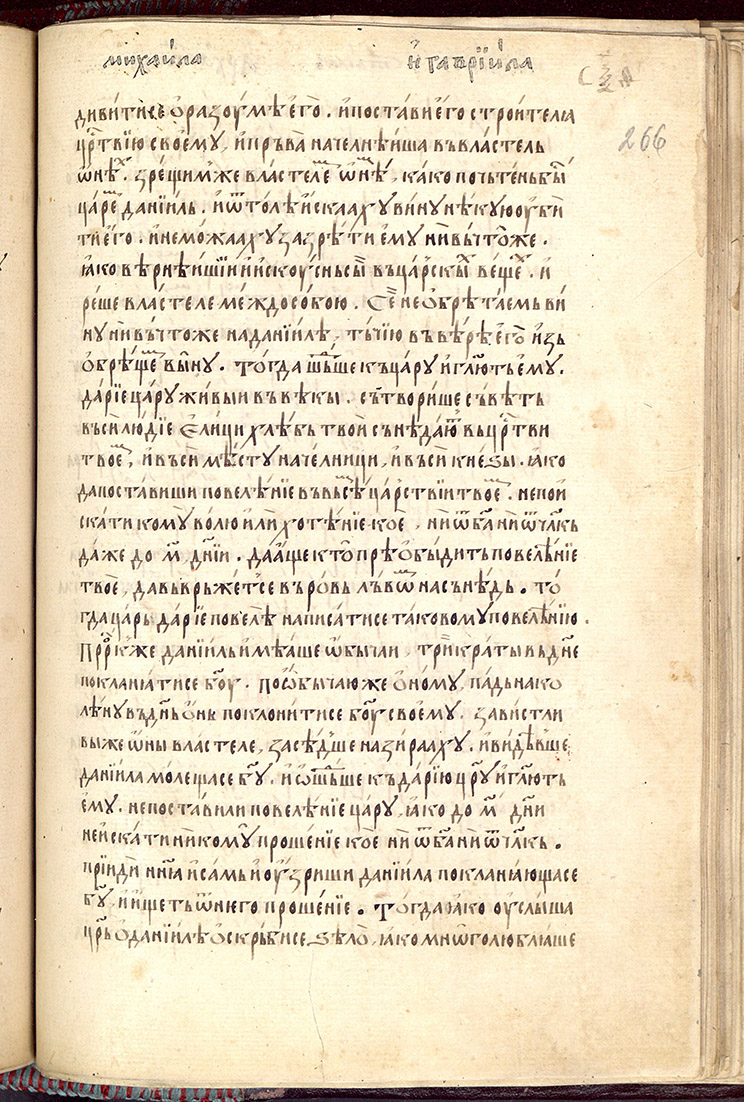 михаи́ла и҆ гаврїи́ла
сѯѕ
266
дивити се ѻ҆ разоумѣ е҆го̀. и҆ постави е҆го строителꙗ
цр҃твїю своемꙋ, и҆ пръва начелнѣиша въ властель
ѡ҆нѣх. зрещим же властелѥм ѡ҆нѣм, како почьтень быⷭ҇
царем данїиль. и҆ ѿтолѣ и҆скаахꙋ винꙋ нѣкꙋю оу҆би
ти е҆го. и҆ не можаахꙋ зазрѣти ємꙋ ни въ чтоже.
ꙗко вѣрнѣишїи и҆ искоусьнь сы въ царскых веще́х. и҆
реше властеле междо собою. Се не ѻ҆брѣтаемь ви
нꙋ ни въ чтоже на данїилѣ, тъчїю въ вѣрѣ е҆го и҆зь
ѻ҆брѣщем вынꙋ. Тогда шьдьше къ царꙋ и҆ гл҃ють ємꙋ.
дарїе царꙋ живыи въ вѣкы. сътворише съвѣть
въси людїе Єлици хлѣбь твои сънѣдають въ цр҃тви
твоем, и҆ въси мѣстꙋ начелници, и҆ въси кнеѕы. ꙗко
да поставиши повелѣнїе въ въсем царствїи твоем. не пои
скати комꙋ волю и҆ли хотѣнїе кое, ни ѿ ба҃ ни ѿ чл҃кь
даже до м҃ дн҃їи. да а҆ще кто прѣѻ҆быдить повелѣнїе
твое, да въврьжет се въ ровь львѡм на сънѣдь. То
гда царь дарїе повелѣ написати се таковомꙋ повелѣнїю.
Прⷪ҇ркь же данїиль и҆мѣаше ѡ҆бычаи, трикраты въ дн҃е
покланꙗти се б҃оу. по ѡ҆бычаю же ѻ҆номꙋ, падь на ко
лѣнꙋ въ дн҃ь ѻ҆нь поклонити се б҃оу своемꙋ. завистли
вы же ѡ҆ны властеле, засѣдше назираахꙋ. и҆ видѣвше
данїила молеща се б҃ꙋ. и҆ ѡ҆шьдьше къ дарїю цр҃ꙋ и҆ гл҃ють
ємꙋ. не постави ли повелѣнїе царꙋ, ꙗко до м҃ дн҃и
не и҆скати никомꙋ прошенїе кое ни ѿ ба҃ ни ѿ чл҃кь.
прїиди нн҃ꙗ и҆ самь и҆ оу҆зриши данїила покланꙗюща се
б҃ꙋ, и҆ и҆щеть ѿ него прошенїе. Тогда ꙗко оу҆слыша
цр҃ь ѻ҆ данїилѣ ѻ҆скрьби се ѕѣлѡ, ꙗко мнѡго люблꙗше